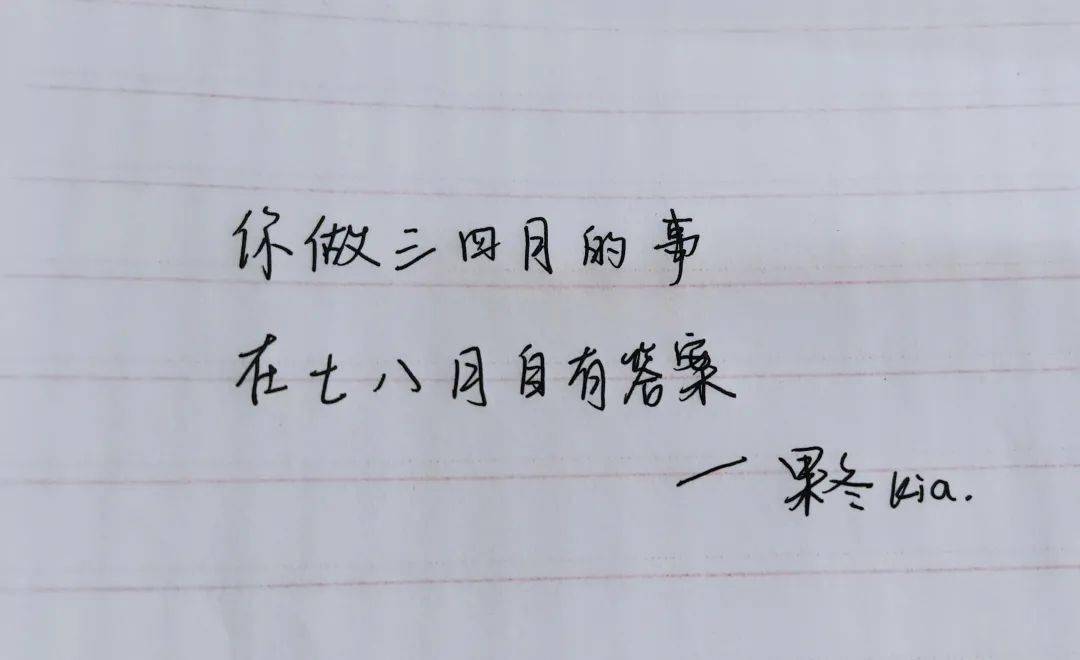 你做三四月的事
在七八月自有答案
一果冬kia.